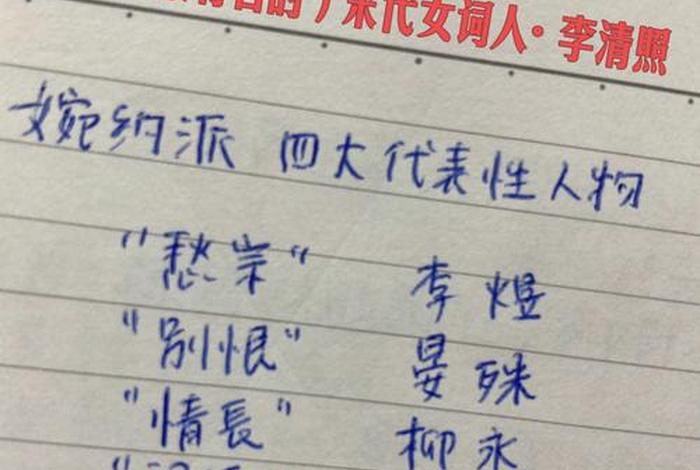 的宋代女词人·李清照
婉约派 四大代表性人物
"愁宗" 李煜
"别恨" 晏殊
"情長" 柳永